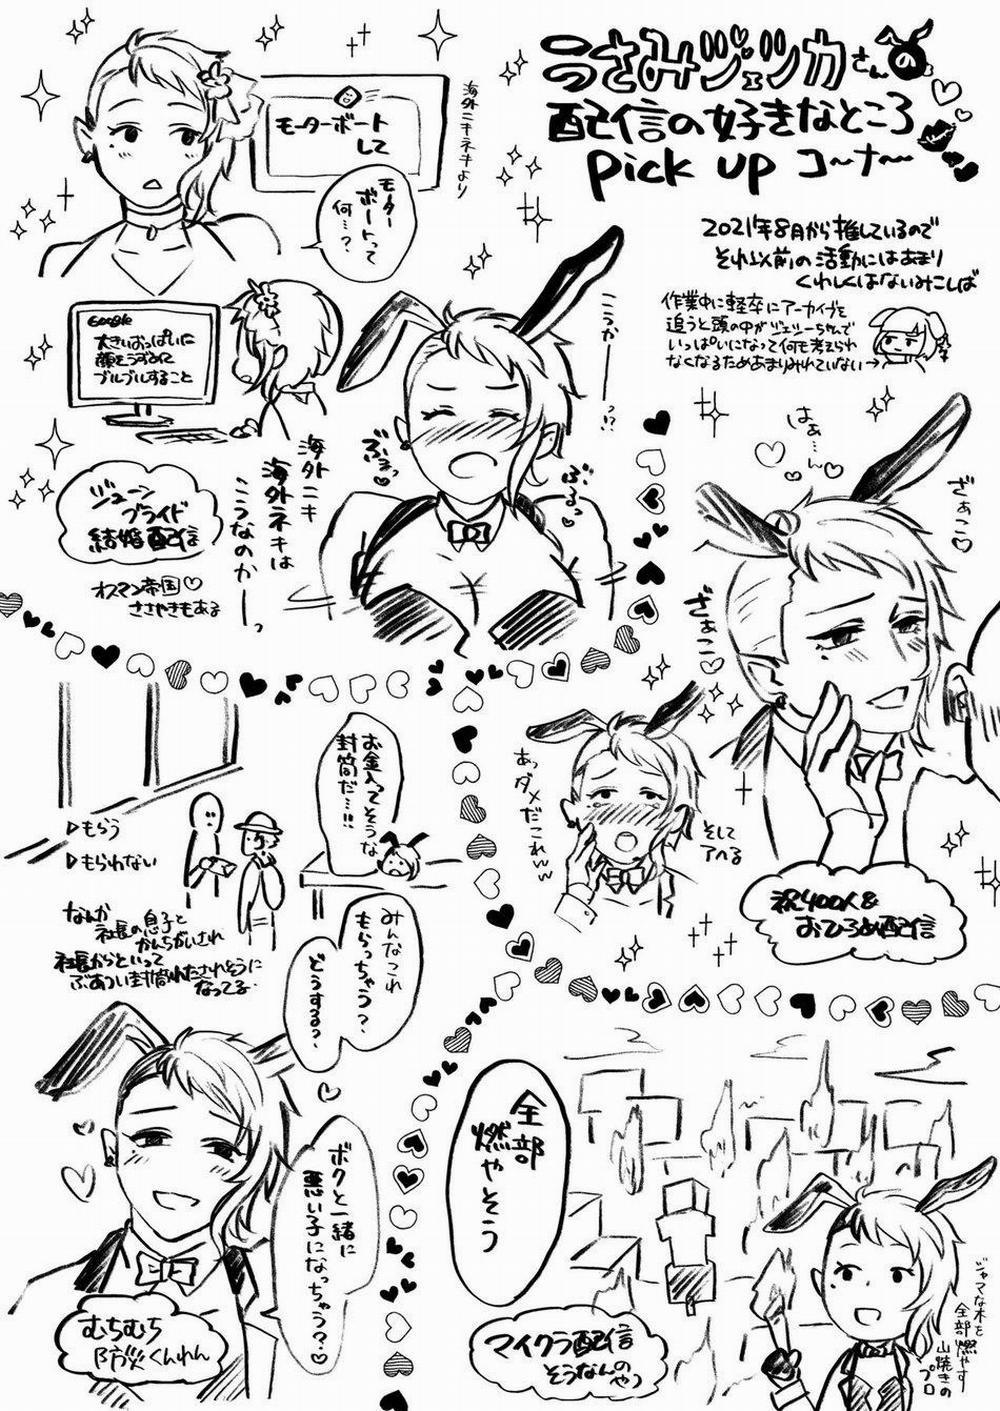 うさみヅェツカさんの
配信の好きなところ
Pick up コ〜ナ〜
2021年8月から推しているので
それ以前の活動にはあまり
くわしくはないみこしば
作業中に軽卒にアーカイブを
追うと頭の中がヅェリーちゃんで
いっぱいになって何も考えられ
なくなるためあまりみれていない→
海外ニキネキより
モーターボート
して
モーター
ボートって
何…?
Google
大きいおっぱいに
顔をうずめて
ブルブルすること
海外ニキ
海外ネキは
こうなのかーっ
こうかーっ!?
ぶるっ
ジューン
ブライド
結婚配信
オスマン帝国♡
ささやきもある
はぁ…ん♡
ざぁこ♡
ざぁこ♡
あっ
ダメだこれww
そして
アへる
祝400人&
おひろめ配信
お金入ってそうな
封筒だ…!!
▷もらう
▷もらわない
なんか
社長の息子と
かんちがいされ
社長からといって
ぶあつい封筒わたされそうに
なってる
みんなこれ
もらっちゃう?
どうする?
ボクと一緒に
悪い子になっちゃう?♡
むちむち
防災くんれん
全部
燃やそう
マイクラ配信
そうなんのやつ
ジャマな木を
全部燃やす
山焼きの
プロ